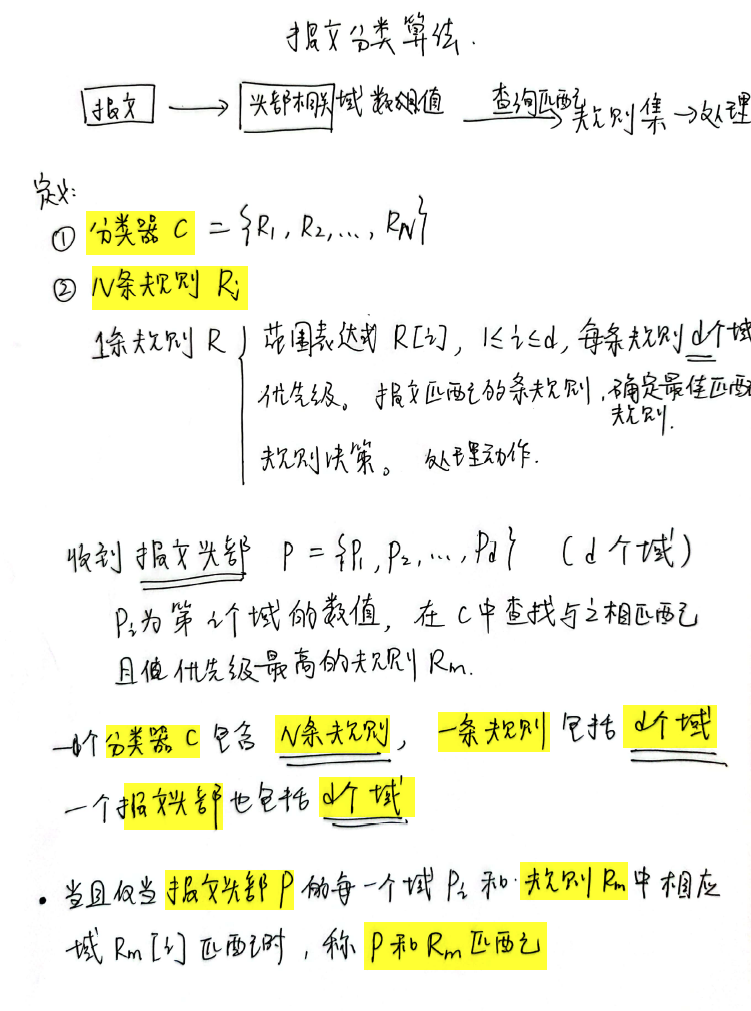 报文分类算法.
报文 → 头部相关域数组值 查询匹配→ 规则集 → 处理
定义:
① 分类器 C = {R1, R2, ..., RN}
② N条规则 Rj
1条规则 R { 范围表达式 R[i], 1≤i≤d, 每条规则d个域
优先级。 报文匹配的条规则, 确定最佳匹配
规则.
规则决策。 处理动作.
收到报文头部 P = {P1, P2, ..., Pd} (d个域)
Pi为第i个域的数值, 在C中查找与之相匹配
且值优先级最高的规则Rm.
一个分类器C包含 N条规则, 一条规则包括 d个域
一个报文头部也包括 d个域
• 当且仅当报文头部P的每一个域Pi和规则Rm中相应
域Rm[i]匹配时, 称 P和Rm匹配